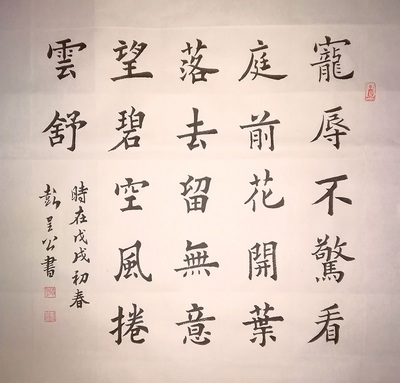 寵辱不驚看
庭前花開葉
落去留無意
望碧空風捲
雲舒
時在戊戌初春
彭呈公書